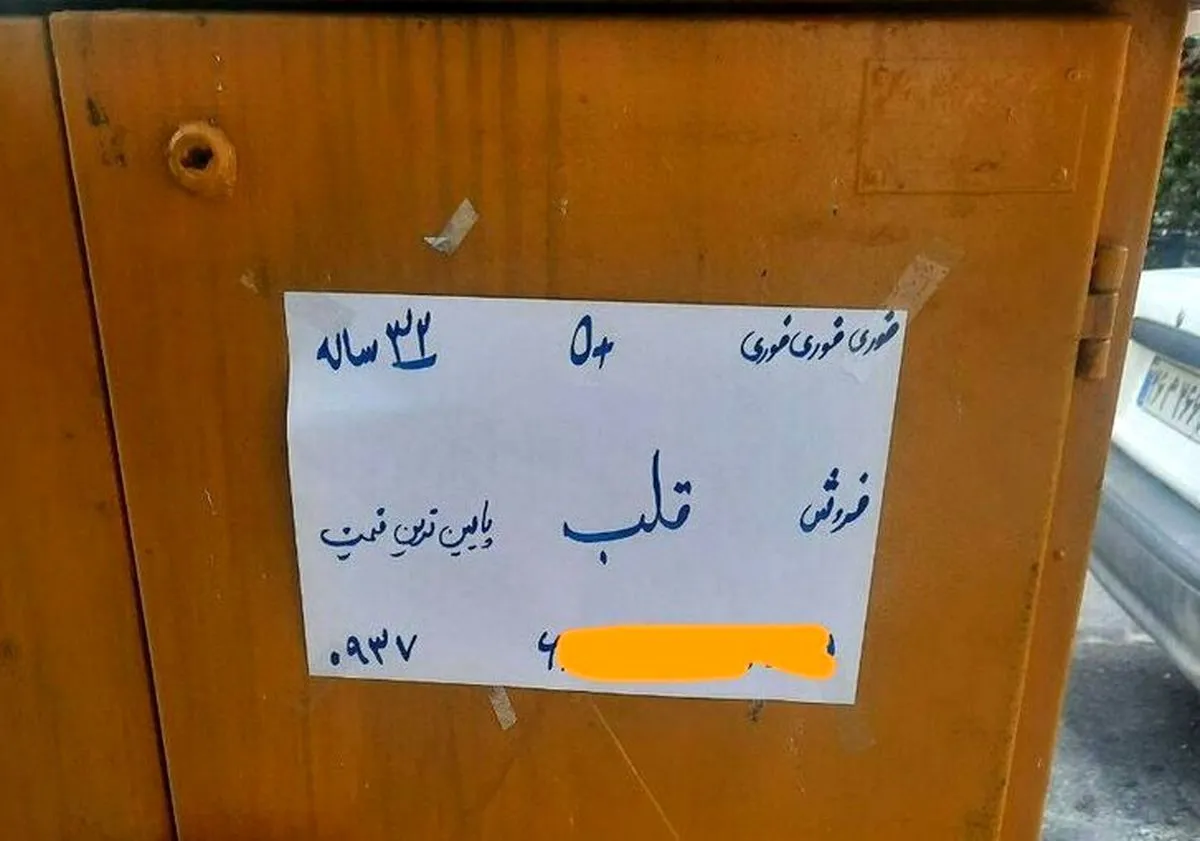 فوری فوری فوری +O ۳۲ ساله
فروش قلب پایین ترین قیمت
۰۹۳۷ ۶